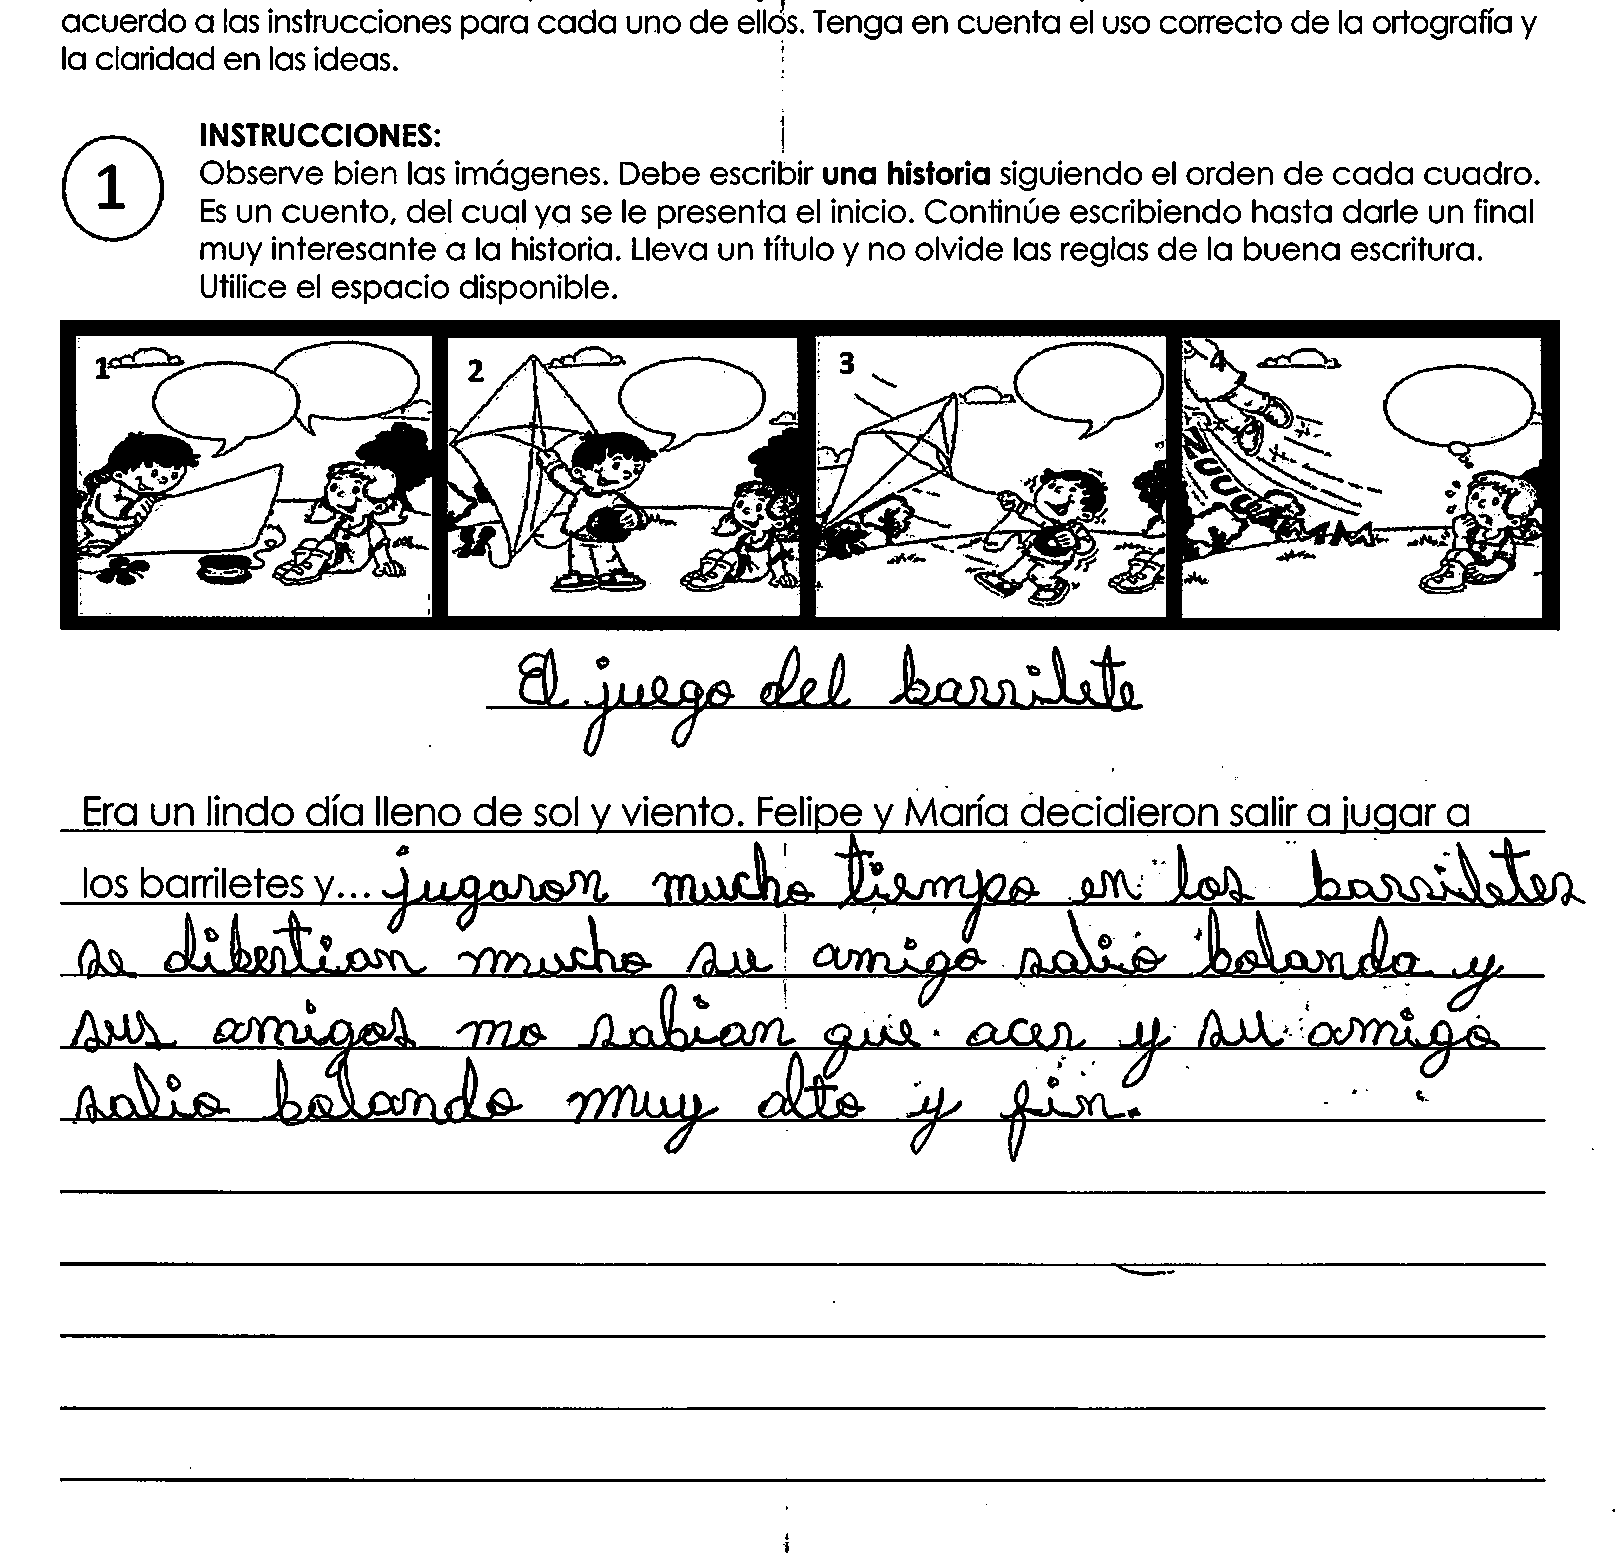 acuerdo a las instrucciones para cada uno de ellos. Tenga en cuenta el uso correcto de la ortografía y
la claridad en las ideas.
INSTRUCCIONES:
1
Observe bien las imágenes. Debe escribir una historia siguiendo el orden de cada cuadro.
Es un cuento, del cual ya se le presenta el inicio. Continúe escribiendo hasta darle un final
muy interesante a la historia. Lleva un título y no olvide las reglas de la buena escritura.
Utilice el espacio disponible.
1 2 3 4
ZUUUMMM
El juego del barrilete
Era un lindo día lleno de sol y viento. Felipe y María decidieron salir a jugar a
los barriletes y... jugaron mucho tiempo en los barriletes
se dibertian mucho su amigo salio bolando y
sus amigos no sabian que acer y su amigo
salio bolando muy alto y fin.